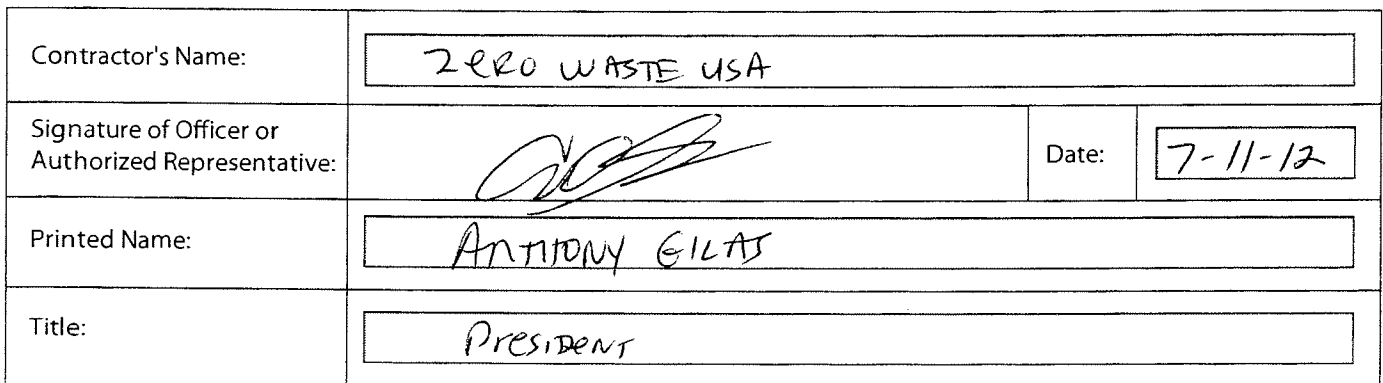 Contractor's Name: Zero Waste USA
Signature of Officer or
Authorized Representative:
Date: 7-11-12
Printed Name: Anthony
Title: President